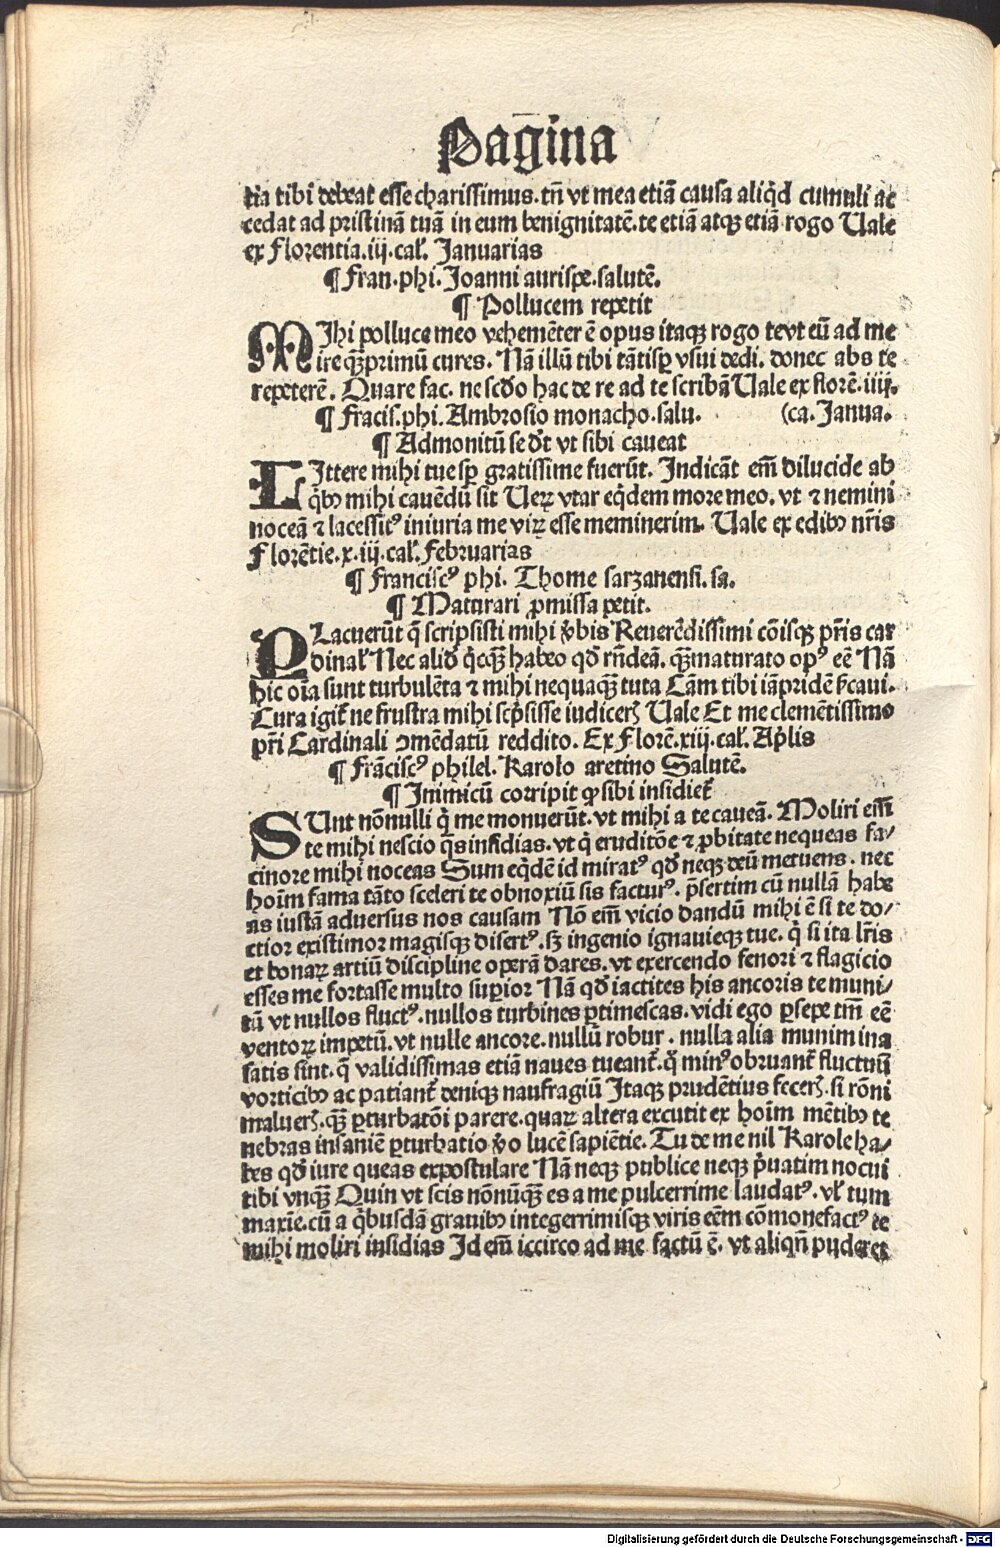 Pagina
tia tibi debeat esse charissimus. tñ vt mea etiã causa aliq̇d cumuli ac
cedat ad pristinã tuã in eum benignitatẽ. te etiã atqꝫ etiã rogo Uale
ex Florentia. iij. cal'. Januarias
¶ Fran. phi. Joanni aurispe. salutẽ.
¶ Pollucem repetit
MIhi polluce meo vehemẽter ẽ opus itaqꝫ rogo te vt eũ ad me
ire qꝫprimũ cures. Nã illũ tibi tãtisꝑ vsui dedi. donec abs te
repeterẽ. Quare fac. ne scďo hac de re ad te scribã Uale ex florẽ. iiij.
¶ Frãcis. phi. Ambrosio monacho. salu. (ca. Janua.
¶ Admonitũ se dr̃t vt sibi caueat
LIttere mihi tue sꝑ gratissime fuerũt. Indicãt em̃ dilucide ab
q̇bꝰ mihi cauẽdũ sit Ueꝝ vtar eq̇dem more meo. vt ⁊ nemini
noceã ⁊ lacessitꝰ iniuria me viꝝ esse meminerim. Uale ex edibꝰ nr̃is
Florẽtie. x. iij. cal'. Februarias
¶ Franciscꝰ phi. Thome sarzanensi. sa.
¶ Maturari ꝓmissa petit.
PLacuerũt q̃ scripsisti mihi v̾bis Reuerẽdissimi cõisqꝫ pr̃is car
dinal' Nec aliď q̇cqꝫ habeo qď rñdeã. qꝫmaturato opꝰ eẽ Nã
hic oĩa sunt turbulẽta ⁊ mihi nequaqꝫ tuta Cãm tibi iãpridẽ p̃caui.
Cura igit̃ ne frustra mihi scp̃sisse iudiceꝛꝭ Uale Et me clemẽtissimo
pr̃i Cardinali ↄmẽdatũ reddito. Ex Florẽ. xiij. cal'. Ap̃lis
¶ Frãciscꝰ philel. Karolo aretino Salutẽ.
¶ Inimicũ corripit ꝙ sibi insidiet̃
SUnt nõnulli q̇ me monuerũt. vt mihi a te caueã. Moliri em̃
te mihi nescio q̇s insidias. vt q̇ eruditõe ⁊ ꝓbitate nequeas fa/
cinore mihi noceas Sum eq̇dẽ id miratꝰ qď neqꝫ deũ metuens. nec
hoĩm fama tãto sceleri te obnoxiũ sis facturꝰ. p̃sertim cũ nullã habe
as iustã aduersus nos causam Nõ em̃ vicio dandũ mihi ẽ si te do/
ctior existimor magisqꝫ disertꝰ. sꝫ ingenio ignauieqꝫ tue. q̇ si ita lr̃is
et bonaꝝ artiũ discipline operã dares. vt exercendo fenori ⁊ flagicio
esses me fortasse multo suꝑior Nã qď iactites his ancoris te muni/
tũ vt nullos fluctꝰ. nullos turbines ꝑtimescas. vidi ego ꝑsepe tm̃ eẽ
ventoꝝ impetũ. vt nulle ancore. nullũ robur. nulla alia munimina
satis sint. q̃ validissimas etiã naues tueant̃. q̇ minꝰ obruant̃ fluctuũ
vorticibꝰ ac patiant̃ deniqꝫ naufragiũ Itaqꝫ prudẽtius feceꝛꝭ. si rõni
malueꝛꝭ. qꝫ ꝑturbatõi parere. quaꝝ altera excutit ex hoĩm mẽtibꝰ te
nebras insaniẽ ꝑturbatio v̾o lucẽ sapiẽtie. Tu de me nil Karole ha/
bes qď iure queas expostulare Nã neqꝫ publice neqꝫ p̃uatim nocui
tibi vnqꝫ Quin vt scis nõnũqꝫ es a me pulcerrime laudatꝰ. vl' tum
maxĩe. cũ a q̇busdã grauibꝰ integerrimisqꝫ viris eẽm cõmonefactꝰ te
mihi moliri insidias Id em̃ iccirco ad me factũ ẽ. vt aliqñ puderet
Digitalisierung gefördert durch die Deutsche Forschungsgemeinschaft - DFG